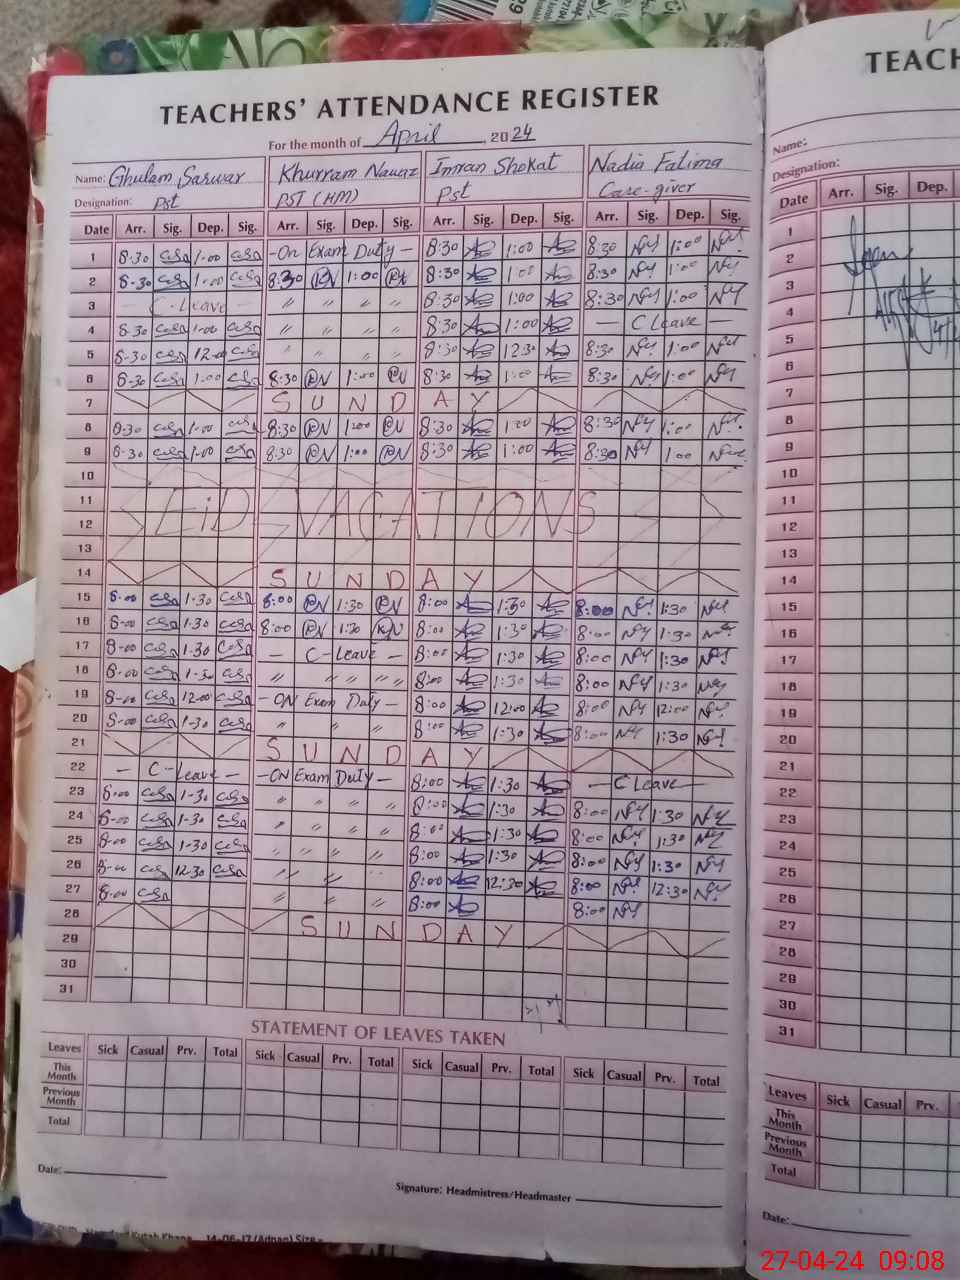 TEACHERS' ATTENDANCE REGISTER
For the month of April, 2024
Name: Ghulam Sarwar Khurram Nawaz Imran Shokat Nadia Fatima
Designation: Pst PST (HM) Pst Care-giver
Date Arr. Sig. Dep. Sig. Arr. Sig. Dep. Sig. Arr. Sig. Dep. Sig. Arr. Sig. Dep. Sig.
1 8-30 1-00 -On Exam Duty- 8:30 1:00 8:30 1:00
2 8-30 1-00 8:30 1:00 8:30 1:00 8:30 1:00
3 C-Leave " " " " 8:30 1:00 8:30 1:00
4 8-30 1-00 " " " " 8:30 1:00 - C Leave -
5 8-30 12-00 " " " " 8:30 12:30 8:30 1:00
6 8-30 1-00 8:30 1:00 8:30 1:00 8:30 1:00
7 SUNDAY
8 8-30 1-00 8:30 1:00 8:30 1:00 8:30 1:00
9 8-30 1-00 8:30 1:00 8:30 1:00 8:30 1:00
10
11 EiD VACATIONS
12
13
14 SUNDAY
15 8-00 1-30 8:00 1:30 8:00 1:30 8:00 1:30
16 8-00 1-30 8:00 1:30 8:00 1:30 8:00 1:30
17 8-00 1-30 - C-Leave - 8:00 1:30 8:00 1:30
18 8-00 1-30 " " " " 8:00 1:30 8:00 1:30
19 8-00 12-00 -ON Exam Duty- 8:00 12:00 8:00 12:00
20 8-00 1-30 " " " 8:00 1:30 8:00 1:30
21 SUNDAY
22 - C-Leave - -ON Exam Duty- 8:00 1:30 - C Leave -
23 8-00 1-30 " " " " 8:00 1:30 8:00 1:30
24 8-00 1-30 " " " " 8:00 1:30 8:00 1:30
25 8-00 1-30 " " " " 8:00 1:30 8:00 1:30
26 8-00 12-30 " " " 8:00 12:30 8:00 12:30
27 8-00 " " " " 8:00 8:00
28 SUNDAY
29
30
31
STATEMENT OF LEAVES TAKEN
Leaves Sick Casual Prv. Total Sick Casual Prv. Total Sick Casual Prv. Total Sick Casual Prv. Total
This Month
Previous Month
Total
Date:
Signature: Headmistress/Headmaster
14-06-17 (Adnan) Size
TEACH
Name:
Designation:
Date Arr. Sig. Dep.
1
2
3
4
5
6
7
8
9
10
11
12
13
14
15
16
17
18
19
20
21
22
23
24
25
26
27
28
29
30
31
Leaves Sick Casual Prv.
This Month
Previous Month
Total
Date:
27-04-24 09:08